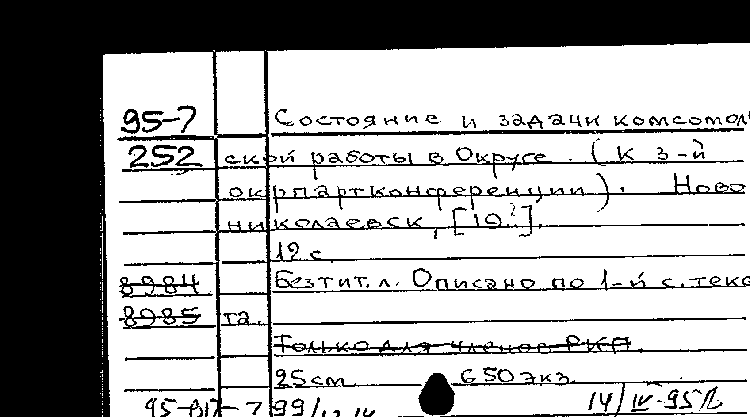 95-7 Состояние и задачи комсомоль
252 ской работы в Округе. (К 3-й
окрпартконференции). Ново
николаевск, [19 ?].
19 с.
8984 Без тит. л. Описано по 1-й с. текс
8985 та.
Только для членов РКП
25 см 650 экз.
14/IV-95